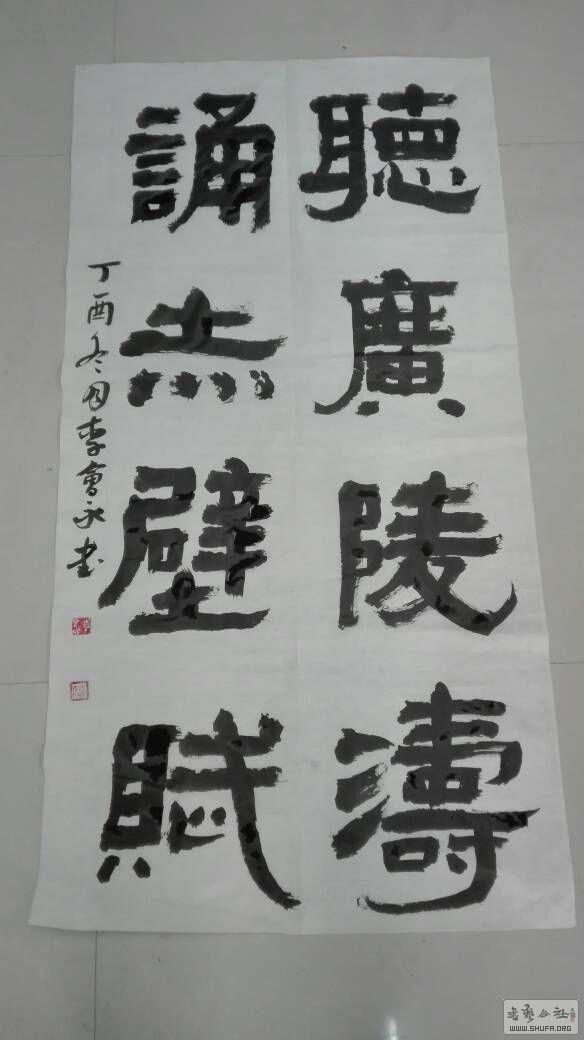 聽廣陵濤
誦赤壁賦
丁酉冬月李會永書
書藝公社
WWW.SHUFA.ORG